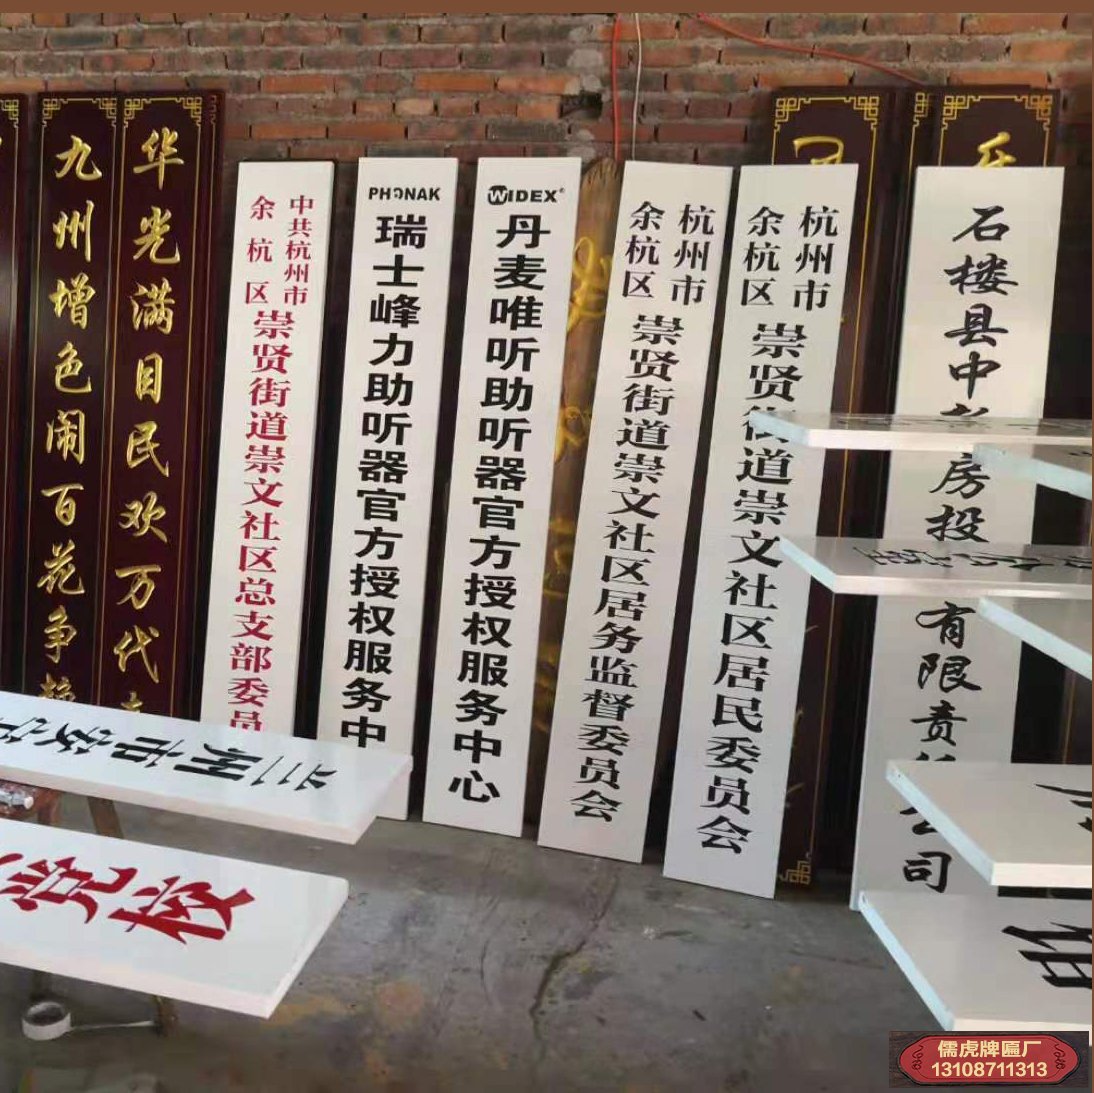 华光满目民欢万代
九州增色闹百花争
中共杭州市
余杭区
崇贤街道崇文社区总支部委员
PHONAK
瑞士峰力助听器官方授权服务中
WIDEX®
丹麦唯听助听器官方授权服务中心
杭州市
余杭区
崇贤街道崇文社区居务监督委员会
杭州市
余杭区
崇贤街道崇文社区居民委员会
石楼县中
房投
有限责
公司
兰州市安宁
党校
儒虎牌匾厂
13108711313